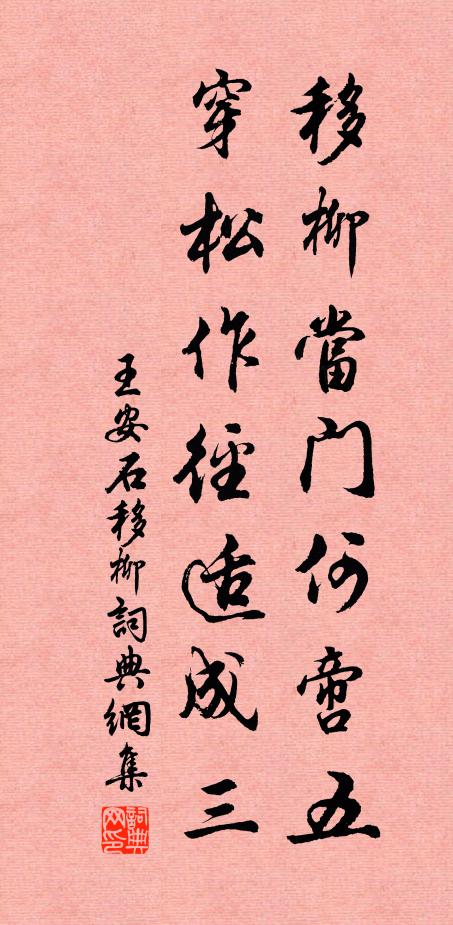 移柳當門何啻五
穿松作徑适成三
王安石移柳詞典網集
詞典网印